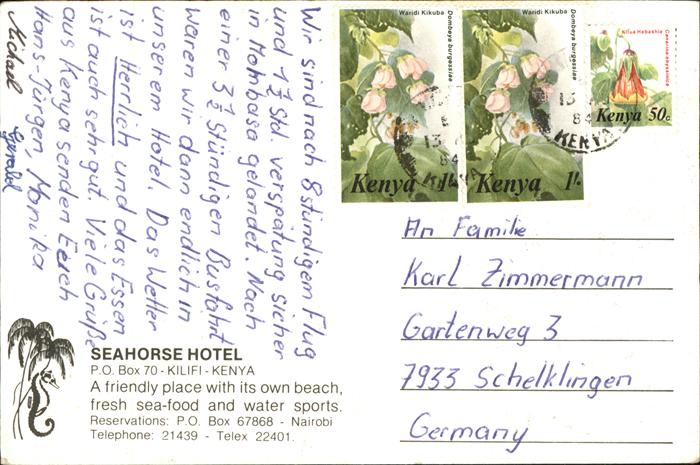 Wir sind nach 8 stündigem Flug
und 1 1/2 Std. verspätung sicher
in Mombasa gelandet. Nach
einer 3 1/2 Stündigen Busfahrt
waren wir dann endlich in
unserem Hotel. Das Wetter
ist Herrlich und das Essen
ist auch sehr gut. Viele Grüße
aus Kenya senden Euch
Hans-Jürgen, Monika
Michael
Waridi Kikuba
Dombeya burgessiae
Kenya 1/-
Waridi Kikuba
Dombeya burgessiae
Kenya 1/-
Kilua Habashia
Canarina abyssinica
Kenya 50c
13
84
KENYA
An Familie
Karl Zimmermann
Gartenweg 3
7933 Schelklingen
Germany
SEAHORSE HOTEL
P.O. Box 70 - KILIFI - KENYA
A friendly place with its own beach,
fresh sea-food and water sports.
Reservations: P.O. Box 67868 - Nairobi
Telephone: 21439 - Telex 22401.